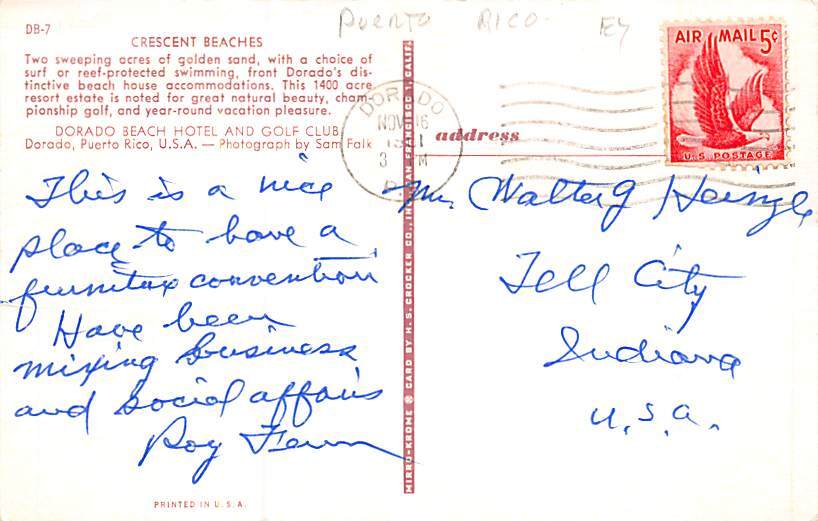 PUERTO RICO EY
DB-7
CRESCENT BEACHES
Two sweeping acres of golden sand, with a choice of
surf or reef-protected swimming, front Dorado's dis-
tinctive beach house accommodations. This 1400 acre
resort estate is noted for great natural beauty, cham-
pionship golf, and year-round vacation pleasure.
DORADO BEACH HOTEL AND GOLF CLUB
Dorado, Puerto Rico, U.S.A. — Photograph by Sam Falk
This is a nice
place to have a
furniture convention
Have been
mixing business
and social affairs
Roy Fenn
PRINTED IN U.S.A.
MIRRO-KROME ® CARD BY H. S. CROCKER CO., INC., SAN FRANCISCO 1, CALIF.
DORADO
NOV 16
3 M
P.R.
AIR MAIL 5¢
U.S. POSTAGE
address
Mr. Walter G
Tell City
Indiana
U.S.A.